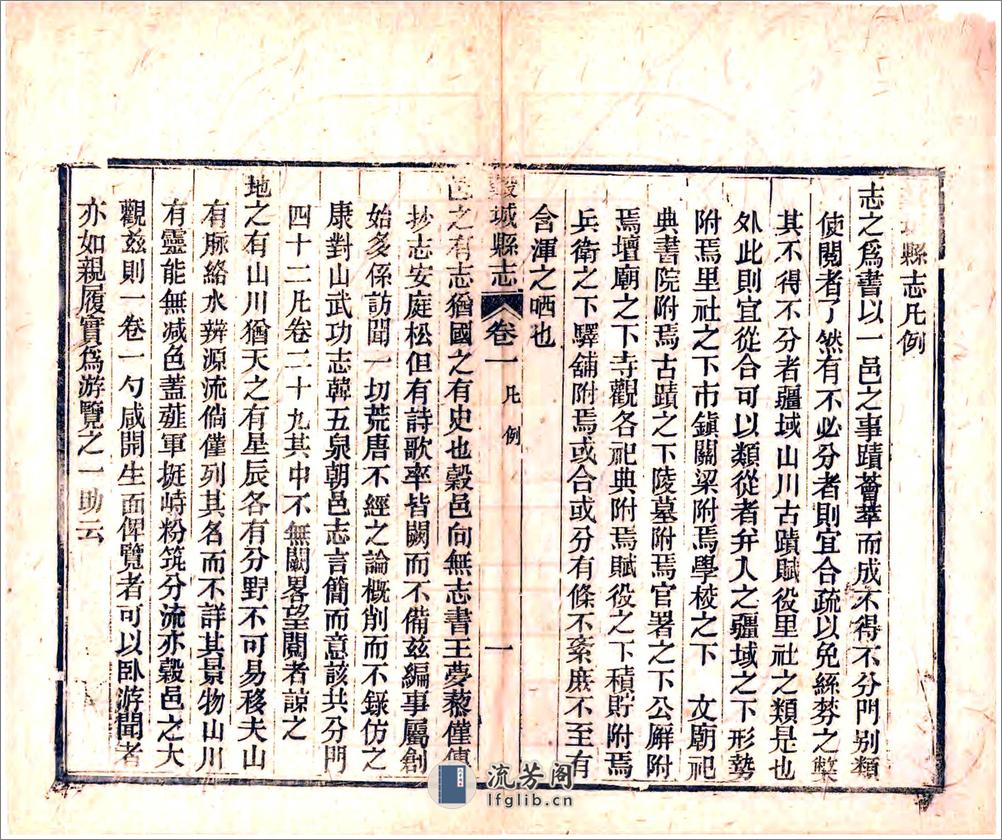 縣志凡例
志之爲書以一邑之事蹟薈萃而成不得不分門别類
使閱者了然有不必分者則宜合疏以免絲棼之弊
其不得不分者疆域山川古蹟賦役里社之類是也
外此則宜從合可以類從者幷入之疆域之下形勢
附焉里社之下市鎭關梁附焉學校之下 文廟祀
典書院附焉古蹟之下陵墓附焉官署之下公廨附
焉壇廟之下寺觀各祀典附焉賦役之下積貯附焉
兵衛之下驛舖附焉或合或分有條不紊庶不至有
含渾之哂也
穀城縣志 卷一 凡例 一
邑之有志猶國之有史也穀邑向無志書王夢藜僅傳
抄志安庭松但有詩歌率皆闕而不備兹編事屬創
始多係訪聞一切荒唐不經之論概削而不錄仿之
康對山武功志韓五泉朝邑志言簡而意該共分門
四十二凡卷二十九其中不無闕畧望閱者諒之
地之有山川猶天之有星辰各有分野不可易移夫山
有脈絡水辨源流倘僅列其名而不詳其景物山川
有靈能無减色蓋薤軍挺峙粉筑分流亦穀邑之大
觀兹則一卷一勺咸開生面俾覽者可以臥游聞者
亦如親履實爲游覽之一助云
流芳阁
lfglib.cn